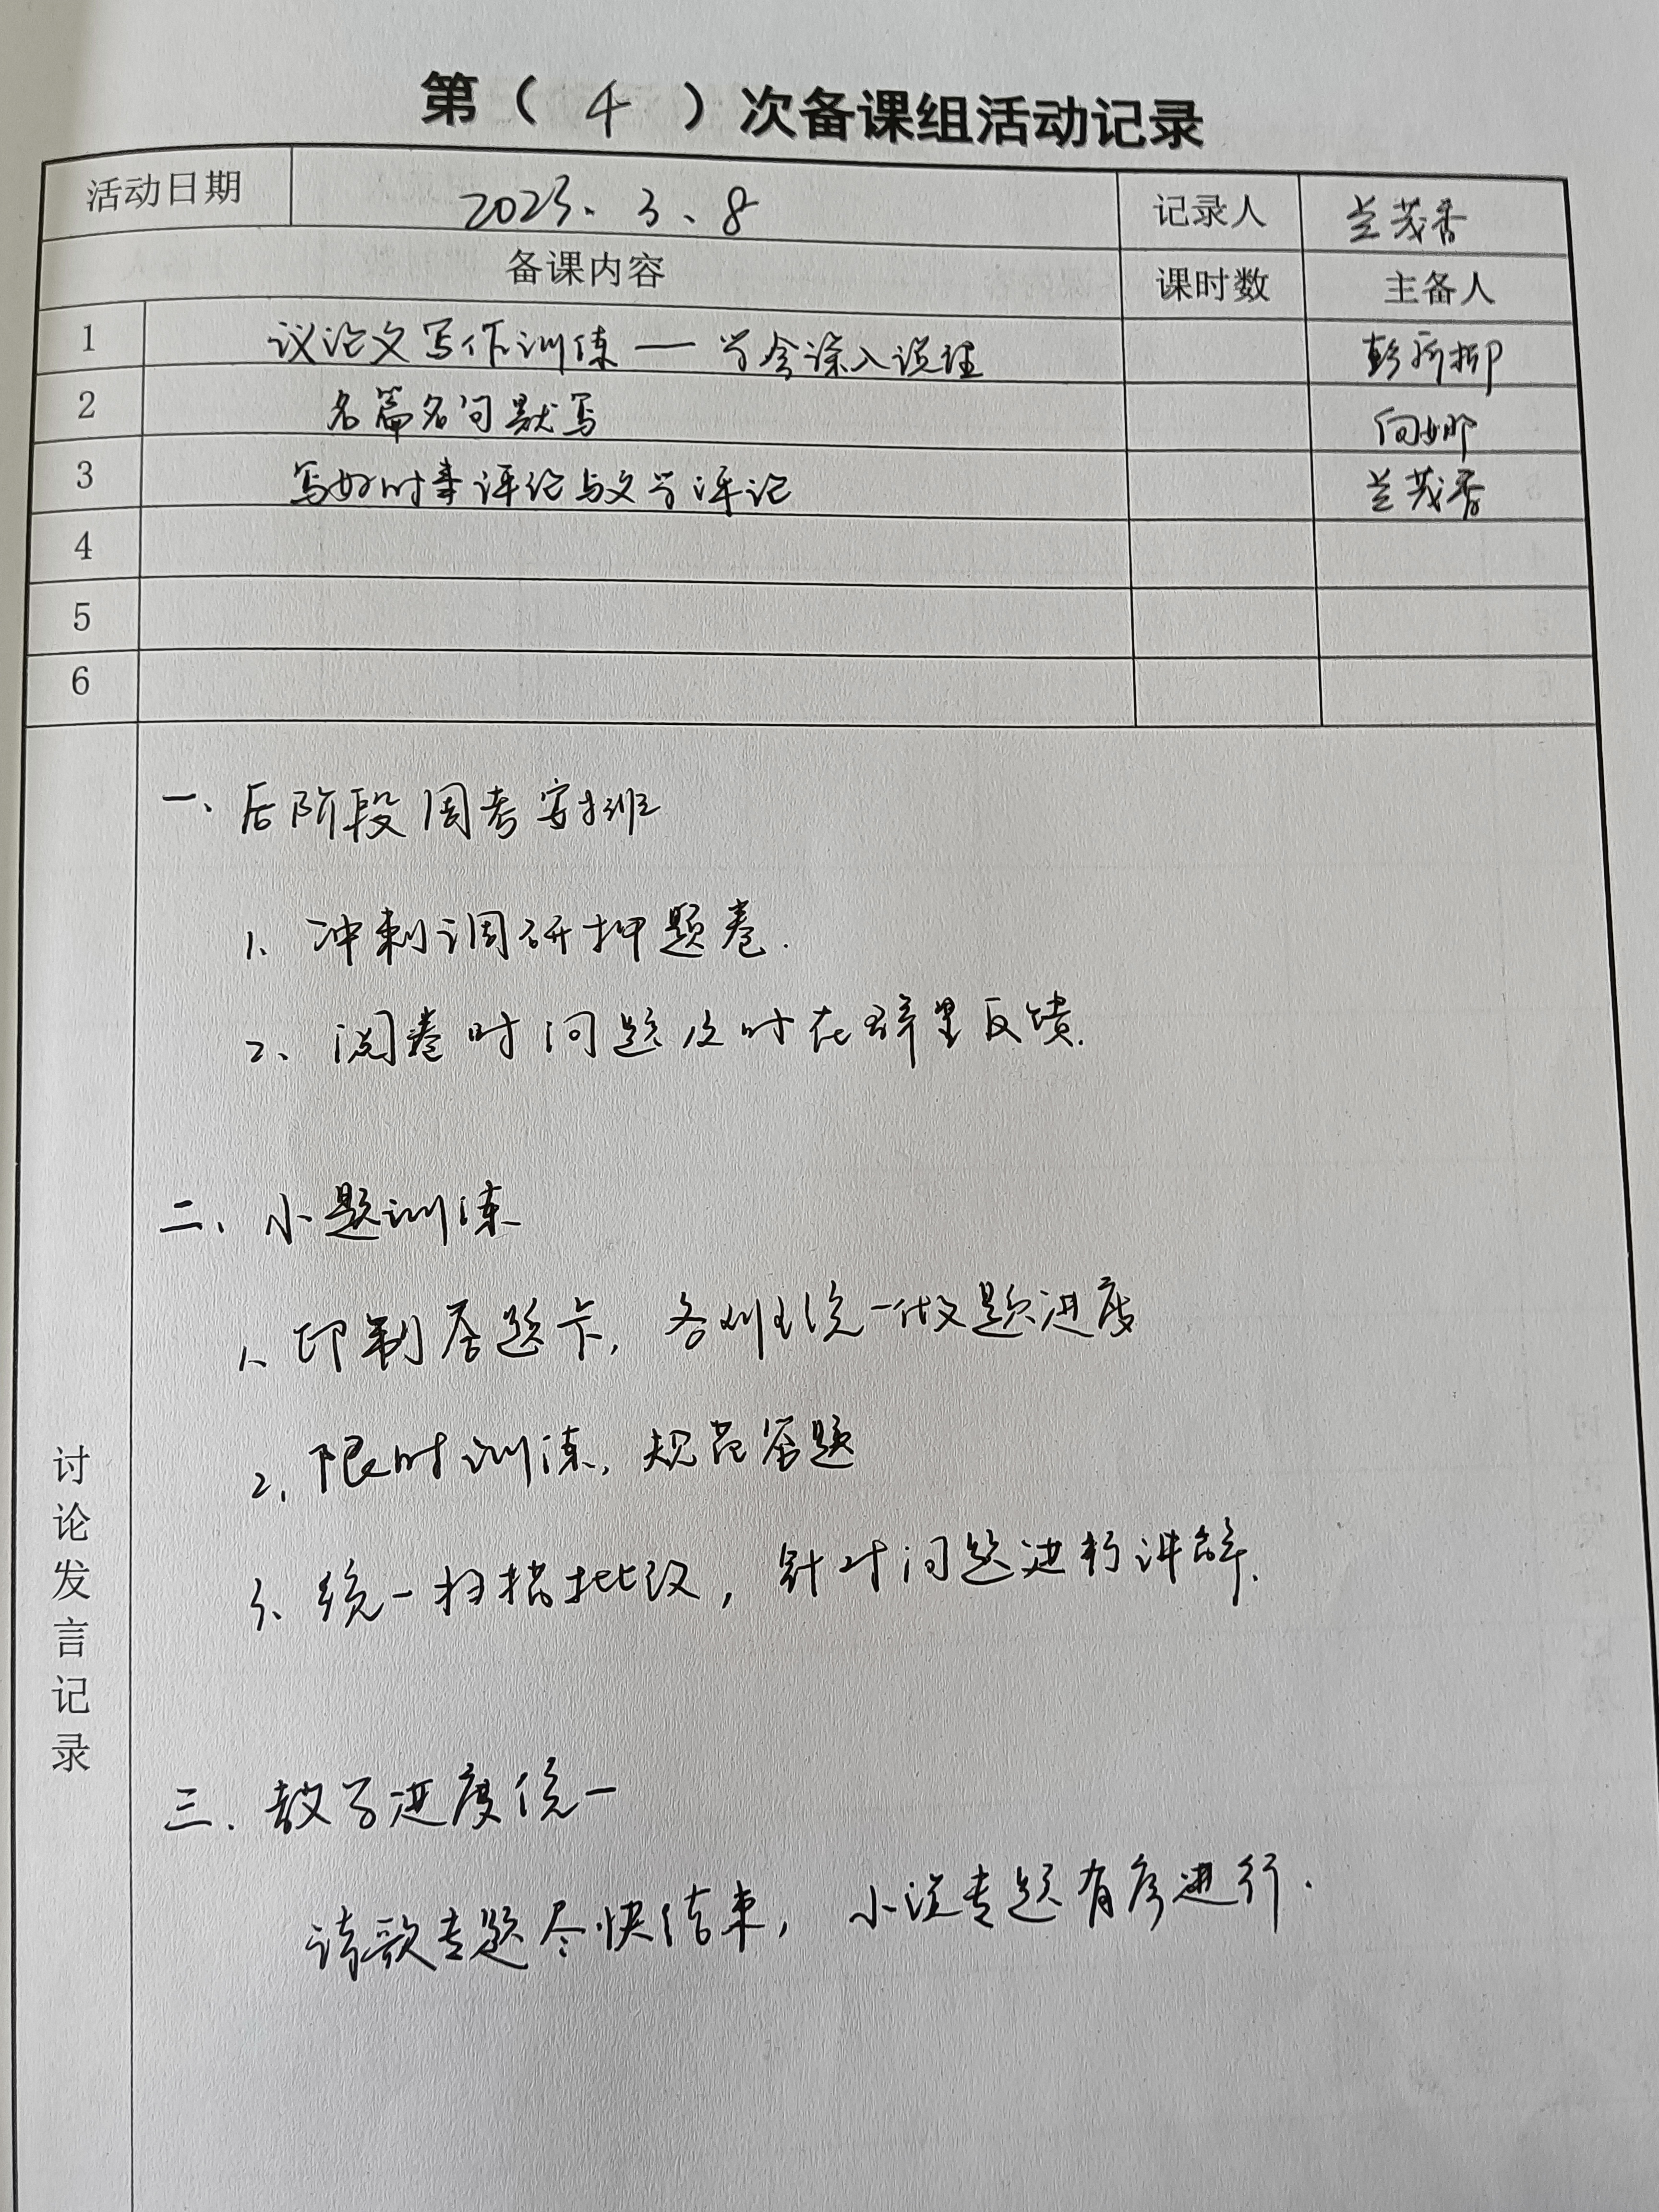 第（ 4 ）次备课组活动记录
活动日期 2023.3.8 记录人 兰茂香
备课内容 课时数 主备人
1 议论文写作训练——学会深入说理 彭
2 名篇名句默写 向娜
3 写好时事评论与文学评论 兰茂香
4
5
6
讨论发言记录
一、后阶段周考安排
1、冲刺调研押题卷.
2、阅卷时问题及时在群里反馈.
二、小题训练
1、印制答题卡，各班统一做题进度
2、限时训练，规范答题
3、统一扫描批改，针对问题进行讲解.
三、教学进度统一
诗歌专题尽快结束，小说专题有序进行.